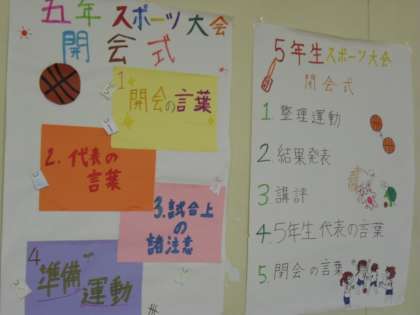 五年スポーツ大会
開会式
1 開会の言葉
2. 代表の
言葉
3. 試合上
の
諸注意
4 準備
運動
5年生スポーツ大会
閉会式
1. 整理運動
2. 結果発表
3. 講評
4. 5年生代表の言葉
5. 閉会の言葉